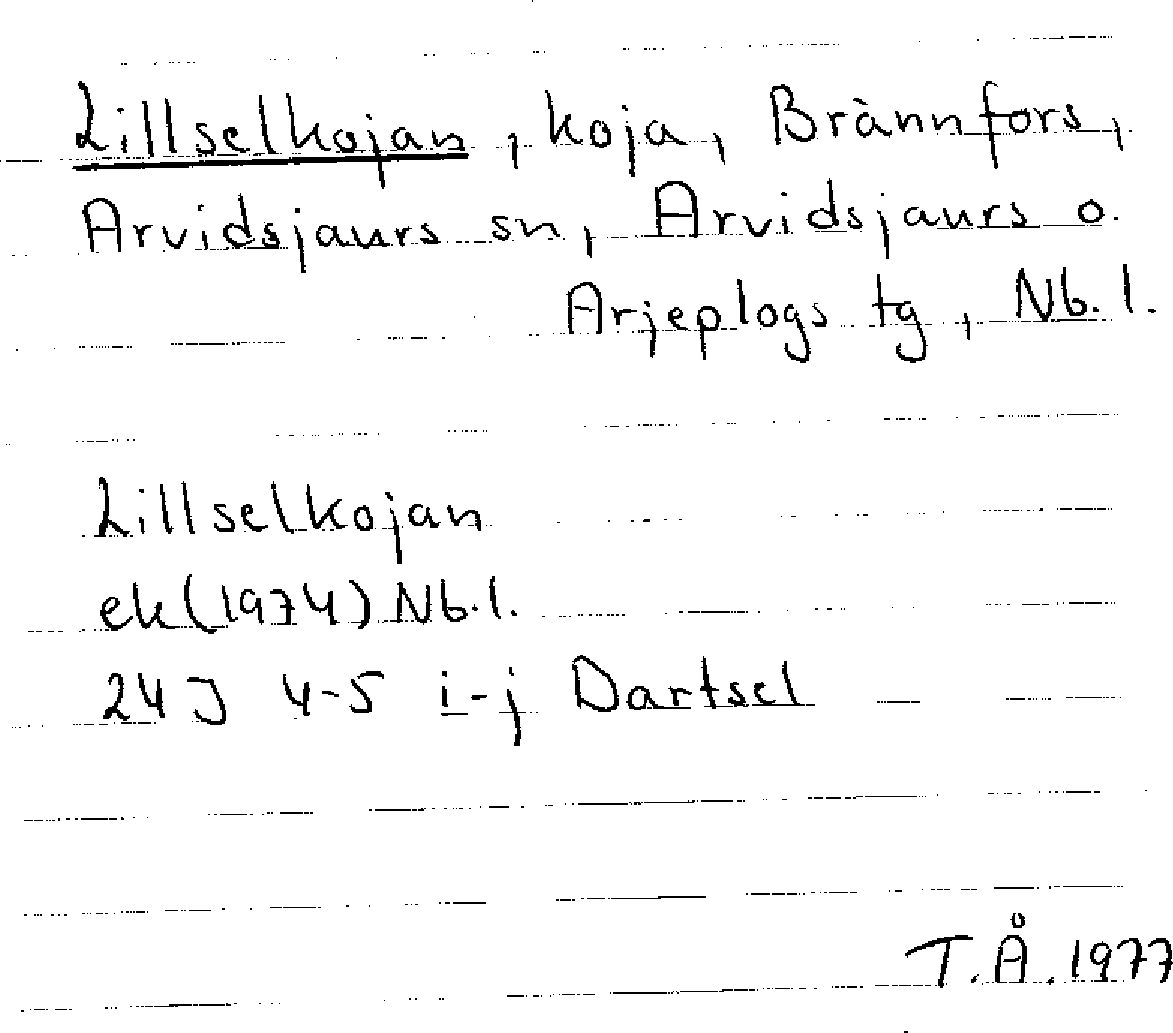 Lillselkojan, koja, Brännfors,
Arvidsjaurs sn, Arvidsjaurs o.
Arjeplogs tg, Nb.l.
Lillselkojan
ek(1974) Nb.l.
24J 4-5 i-j Dartsel
T.Å. 1977